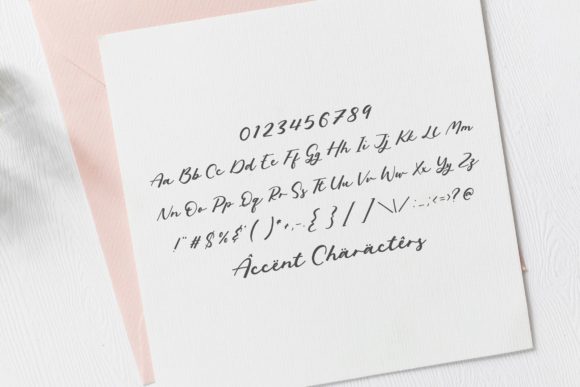 0123456789
Aa Bb Cc Dd Ee Ff Gg Hh Ii Jj Kk Ll Mm
Nn Oo Pp Qq Rr Ss Tt Uu Vv Ww Xx Yy Zz
!"#$%&'()*+,-.{}//\\/:_;<=>?@
Âccënt Chäräctêrs